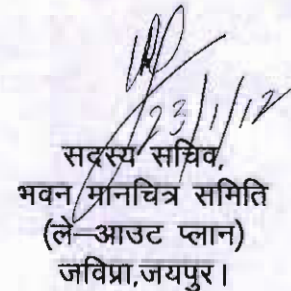 23/1/12
सदस्य सचिव,
भवन मानचित्र समिति
(ले–आउट प्लान)
जविप्रा,जयपुर।